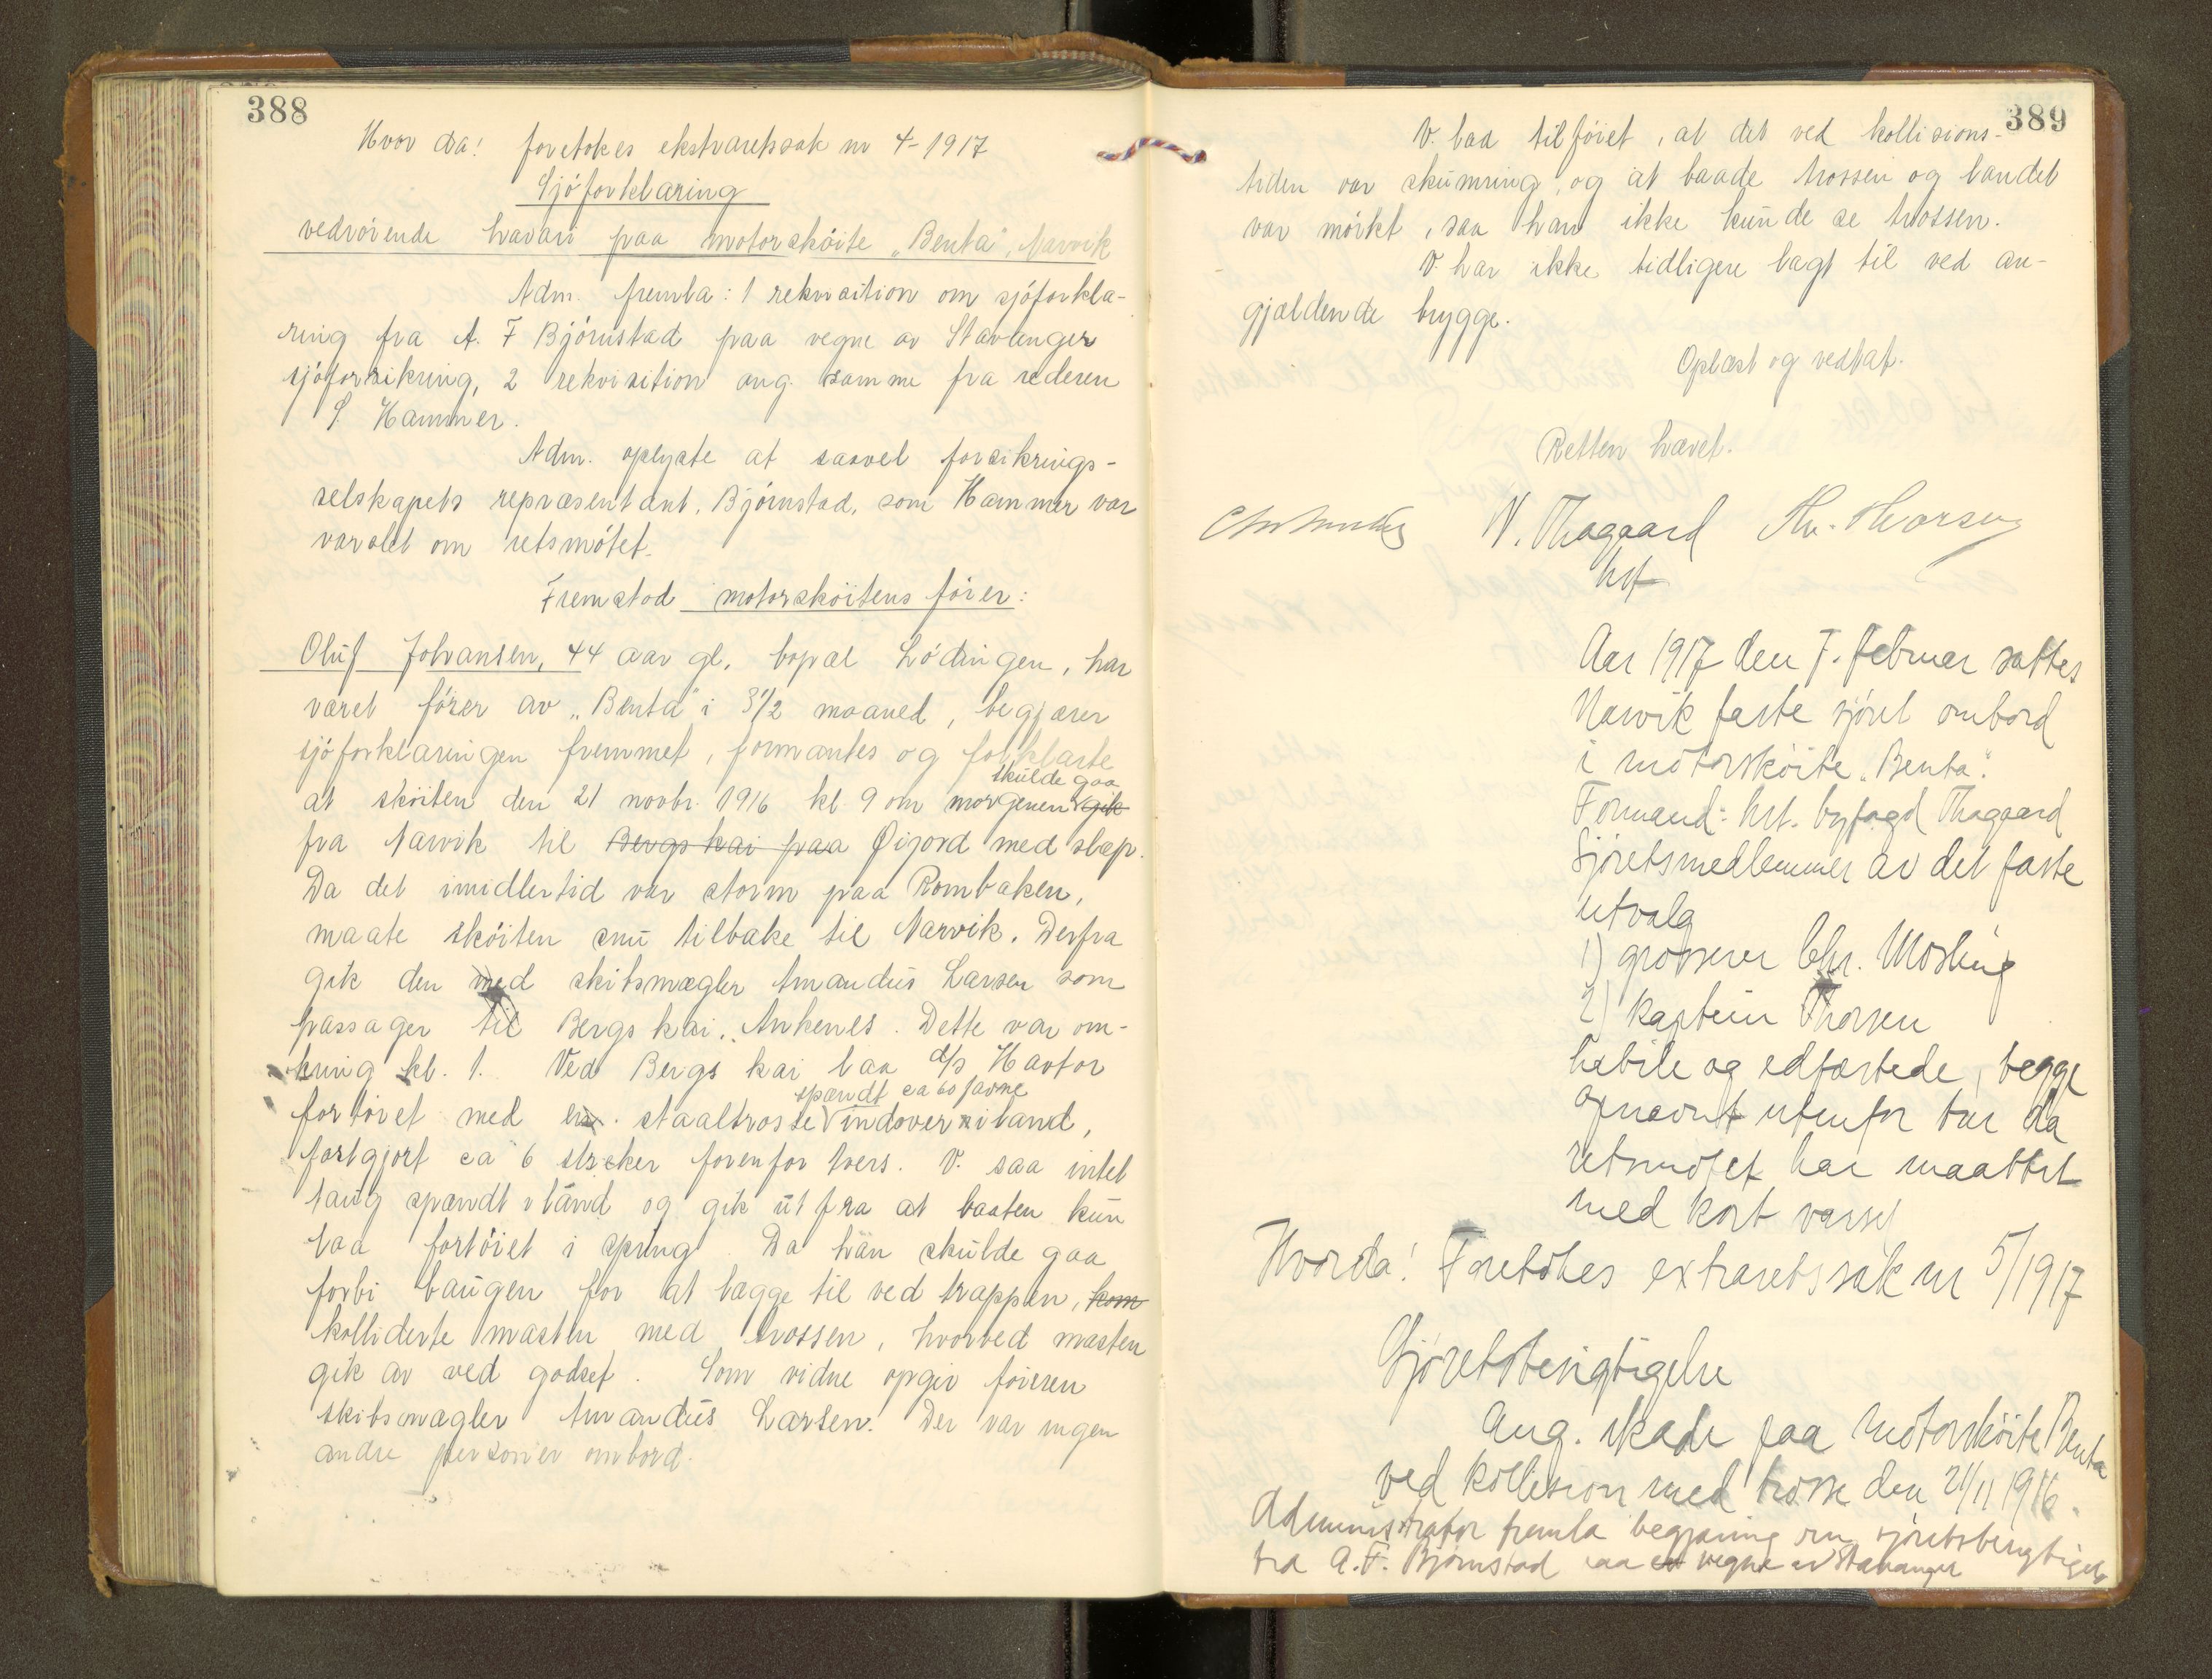 388
Hvor da! foretokes ekstraretssak nr 4-1917
Sjöforklaring
vedrörende havari paa motorsköite „Benta", Narvik
Adm. fremla: 1 rekvisition om sjöforkla-
ring fra A. F Björnstad paa vegne av Stavanger
sjöforsikring, 2 rekvisition ang. samme fra rederen
S. Hammer.
Adm. oplyste at saavel forsikrings-
selskapets repræsentant, Björnstad, som Hammer var
varslet om retsmötet.
Fremstod motorsköitens förer:
Oluf Johansen, 44 aar gl. bopæl Lödingen, har
været förer av „Benta" i 3½ maaned, begjærer
sjöforklaringen fremmet, formantes og forklarte
skulde gaa
at sköiten den 21 novbr. 1916 kl 9 om morgenen gik
fra Narvik til Bergs kai paa Øijord med slæp.
Da det imidlertid var storm paa Rombaken,
maate sköiten snu tilbake til Narvik. Derfra
gik den med skibsmægler Amandus Larsen som
passager til Bergs kai, Ankenes. Dette var om-
kring kl. 1. Ved Bergs kai laa d/s Havtor
spændt ca 60 favne
fortöiet med en staaltrosse indover i land,
fastgjort ca 6 streker forenfor tvers. V. saa intet
taug spændt i land og gik ut fra at baaten kun
laa fortöiet i spring. Da han skulde gaa
forbi baugen for at lægge til ved trappen, kom
kolliderte masten med trossen, hvorved masten
gik av ved godset. Som vidne opgiv föreren
skibsmægler Amandus Larsen. Der var ingen
andre personer ombord.
389
V. baa tilföiet, at det ved kollisions-
tiden var skumring, og at baade trossen og landet
var mörkt, saa han ikke kunde se trossen.
V. har ikke tidligere lagt til ved an-
gjældende brygge.
Oplæst og vedtat.
Retten hævet.
N. Thagaard Thorsen
hst
Aar 1917 den 7. februar sattes
Narvik faste sjöret ombord
i motorsköite „Benta".
Formand: hst. byfogd Thagaard
Sjöretsmedlemmer av det faste
utvalg
1) grosserer Chr. Mosling
2) Kaptein Thorsen
habile og edfæstede, begge
opnævnt utenfor tur da
retsmötet har maattet
med kort varsel
Hvorda! Foretokes extraretssak nr 5/1917
Sjöretsbesigtigelse
ang. skade paa motorsköite Benta
ved kollision med trosse den 21/11 1916.
Administrator fremla begjæring om sjöretsbesigtigelse
fra A. F. Björnstad paa vegne av Stavanger